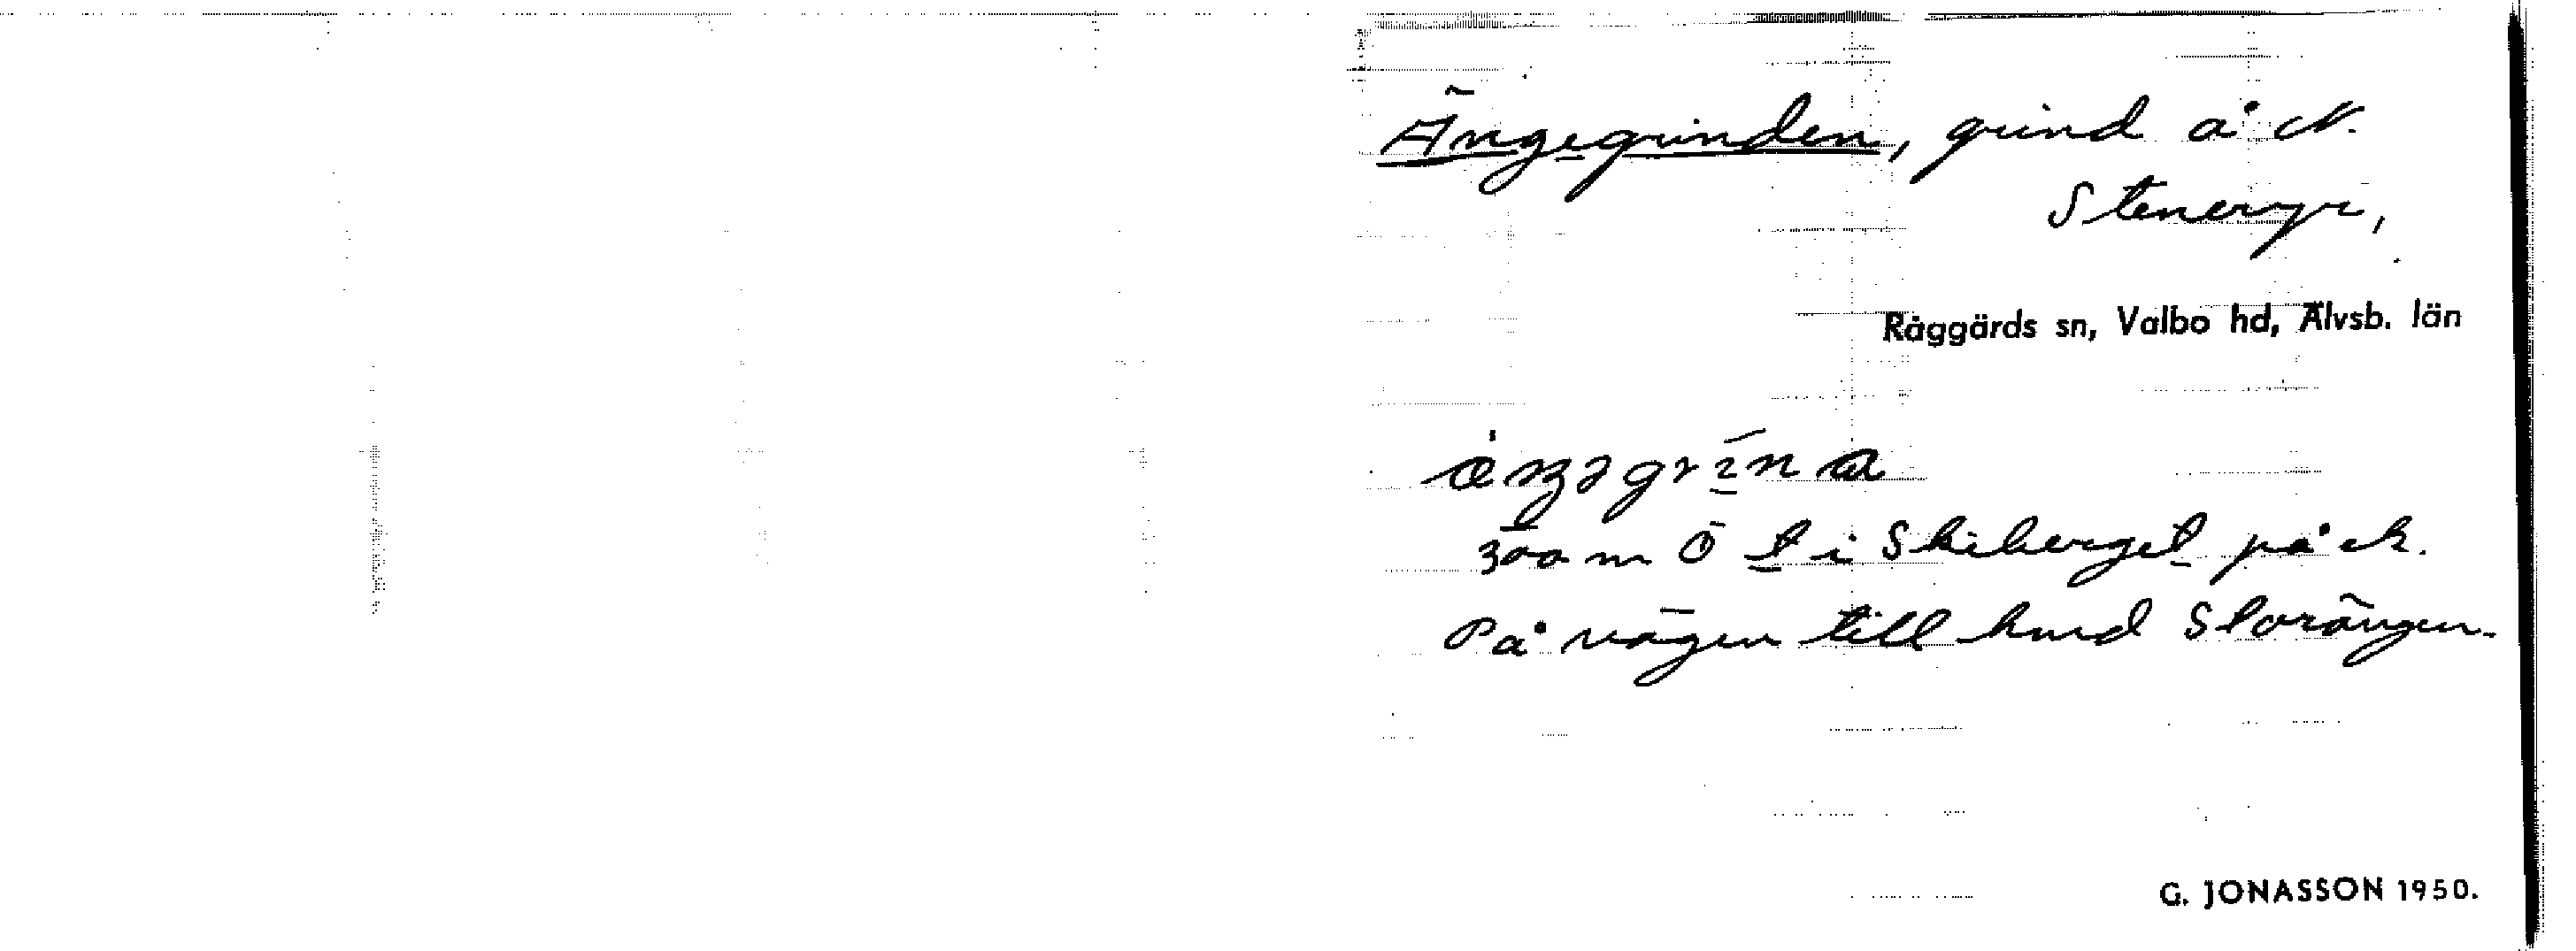 Ängegrinden, grind å N.
Steneryr,
Råggärds sn, Valbo hd, Älvsb. län
300 m Ö t i Skiberget på ek.
På vägen till hmd Storängen.
G. JONASSON 1950.